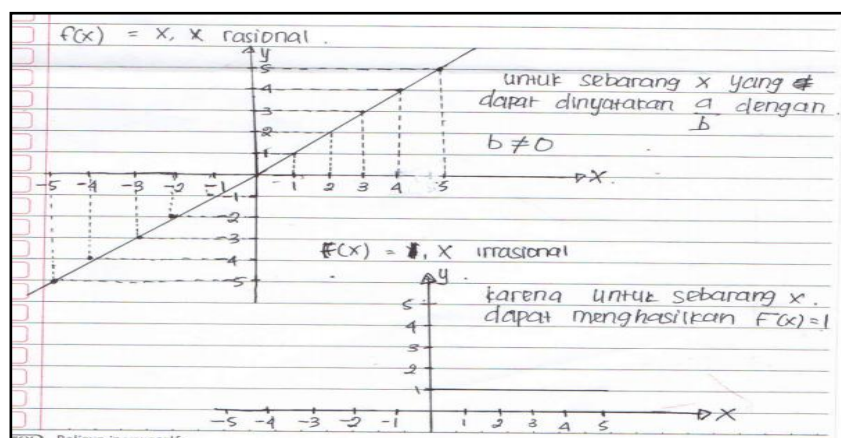 f(x) = x, x rasional.
y
5
4
3
2
1
-5 -4 -3 -2 -1 1 2 3 4 5 x
-1
-2
-3
-4
-5
untuk sebarang x yang
dapat dinyatakan a/b dengan
b ≠ 0
F(x) = 1, x irrasional
y
5
4
3
2
1
-5 -4 -3 -2 -1 1 2 3 4 5 x
karena untuk sebarang x.
dapat menghasilkan F(x)=1